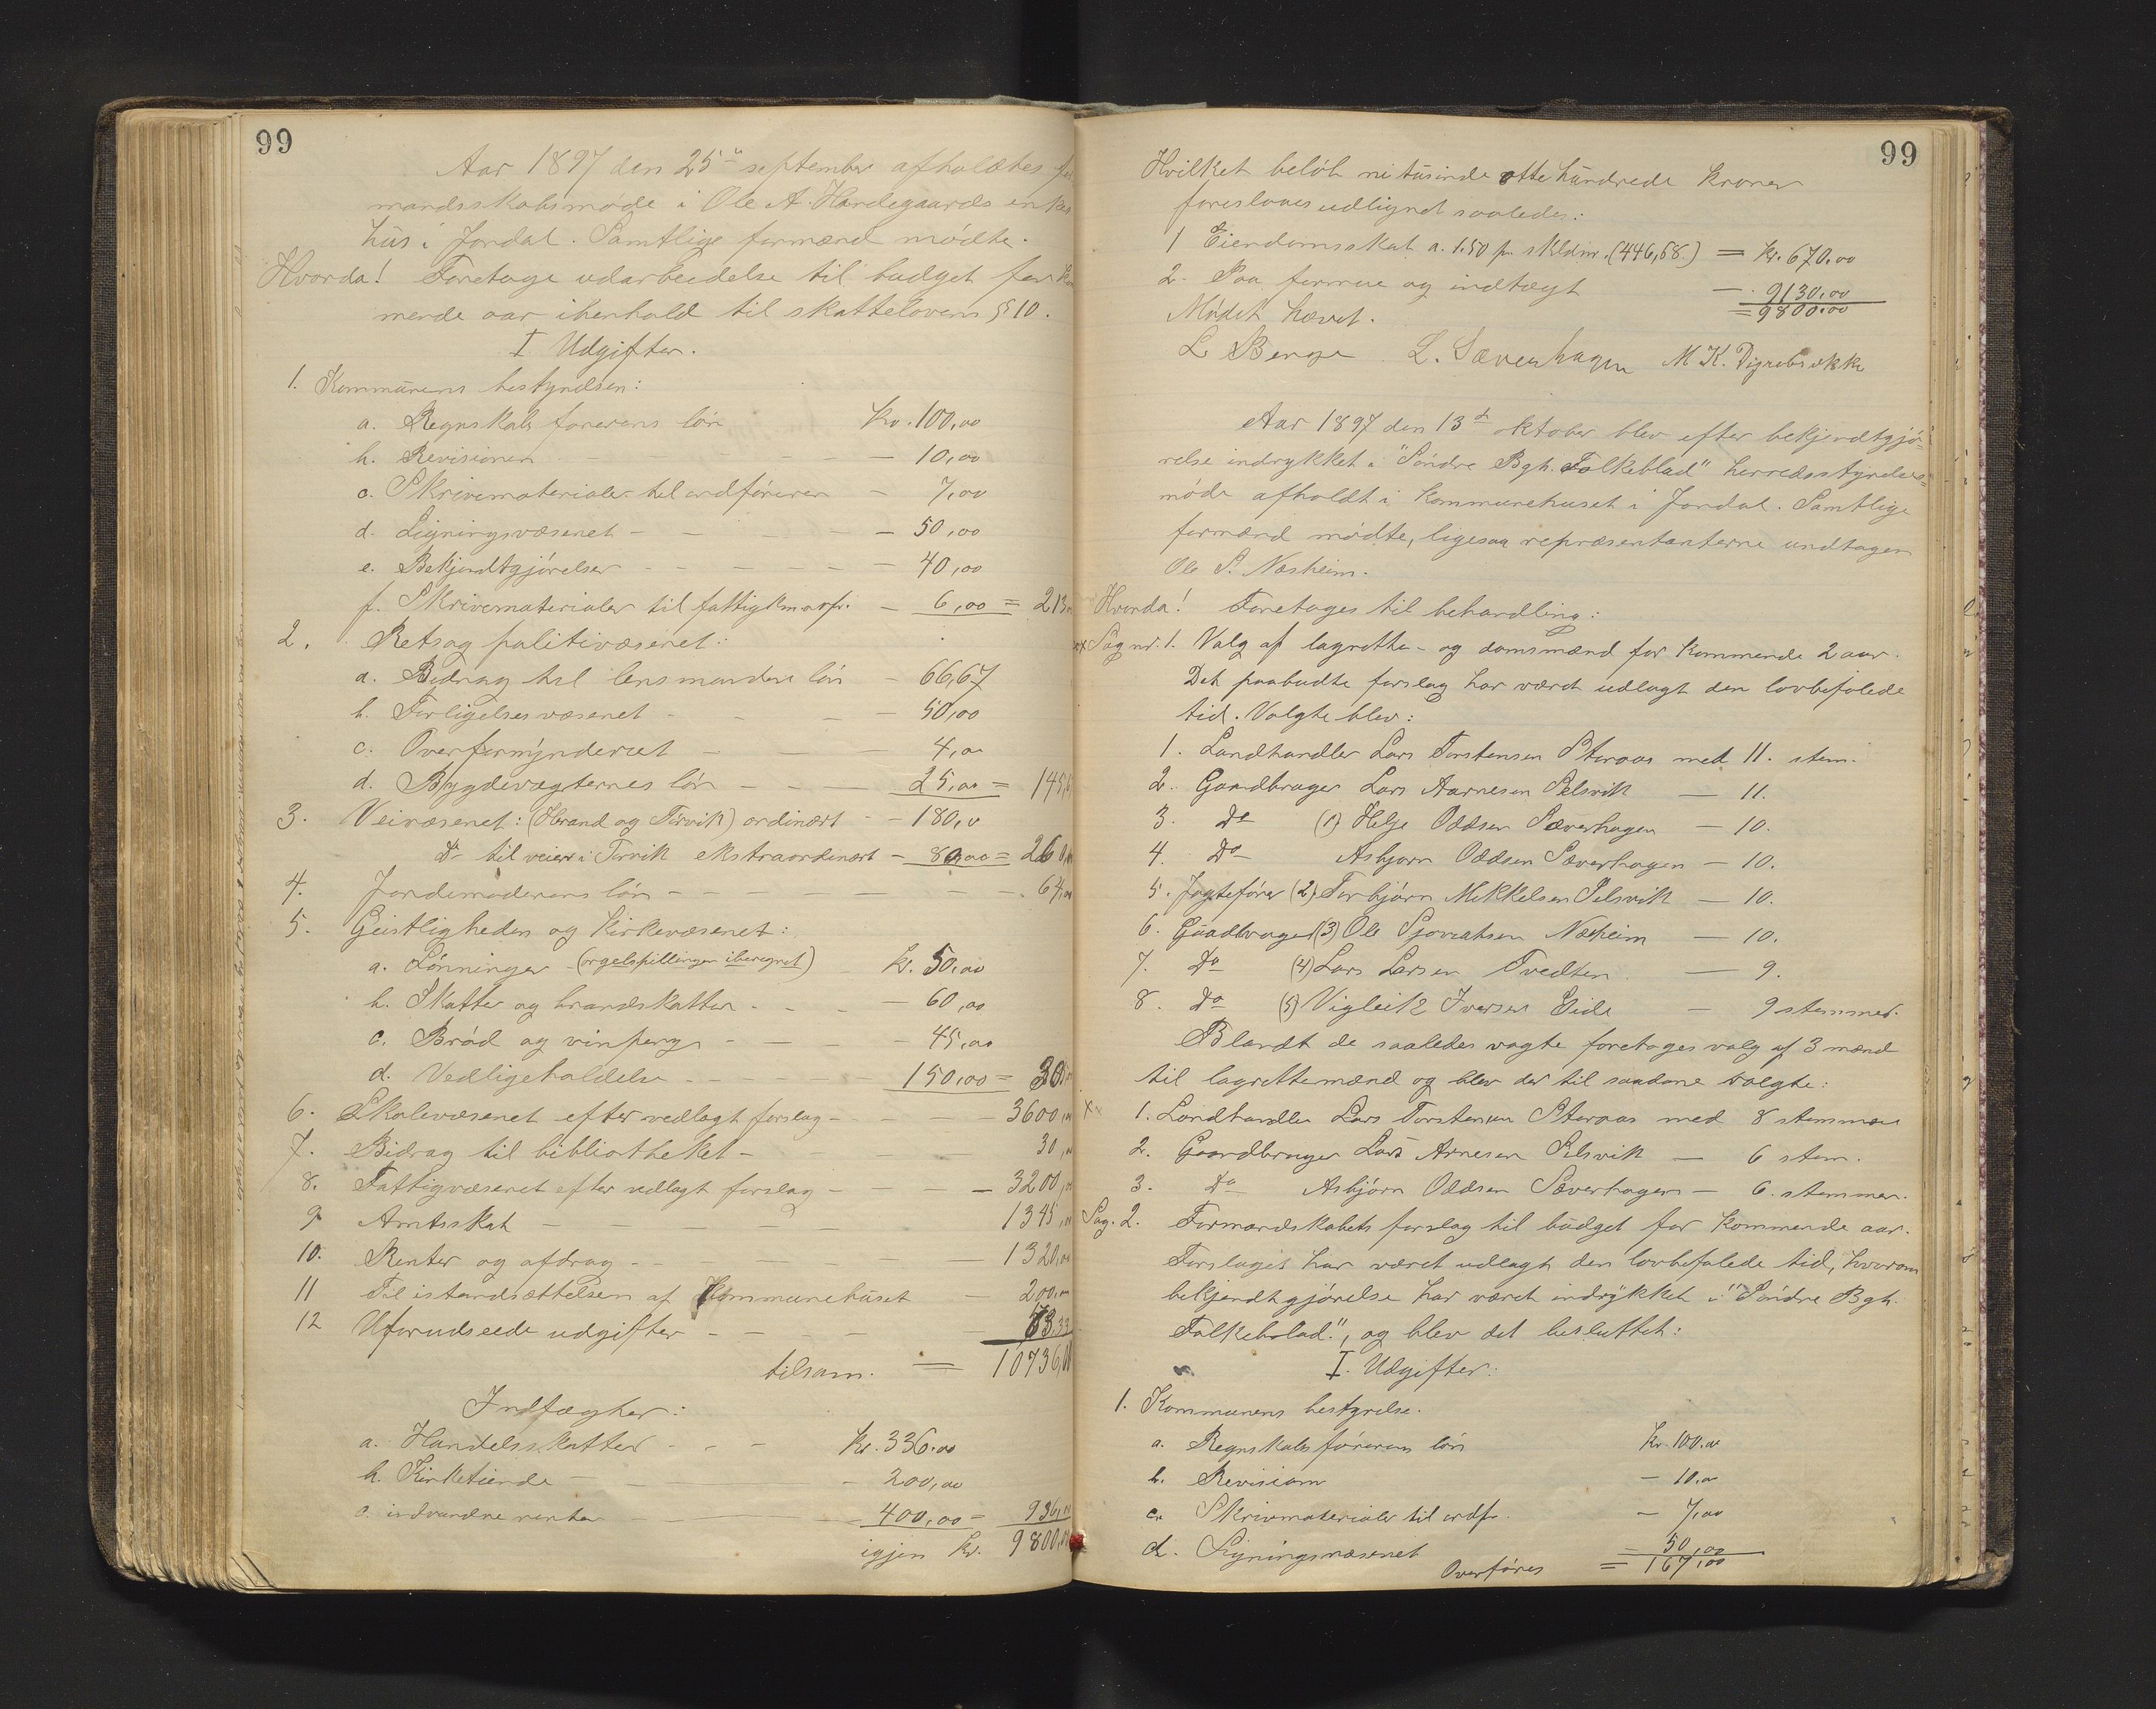 99
Aar 1897 den 25de september afholdtes for
mandsskabsmøde i Ole A. Hardegaards enkes
hus i Jondal. Samtlige formænd mødte.
Hvorda! Foretoges udarbeidelse til budget for kom
mende aar ihenhold til skattelovens § 10.
I Udgifter.
1. Kommunens bestyrelsen:
a. Regnskabsførerens løn Kr. 100,00
b. Revisionen — 10,00
c. Skrivematerialer til ordføreren — 7,00
d. Ligningsvæsenet — 50,00
e. Bekjendtgjørelser — 40,00
f. Skrivematerialer til fattigkm.ordfr. — 6,00 = 213
2. Rets og politivæsenet:
a. Bidrag til lensmandens løn — 66,67
b. Forligelsesvæsenet — 50,00
c. Overformynderiet — 4,00
d. Bygdevægternes løn — 25,00 = 145,
3. Veivæsenet: (Herand og Torvik) ordinært — 180,0
Do til veien i Torvik ekstraordinært — 80,00 = 260,
4. Jordemoderens løn — 64,00
5. Geistligheden og Kirkevæsenet:
a. Lønninger (orgelspillingen iberegnet) Kr. 50,00
b. Skatter og brandskatter — 60,00
c. Brød og vinpenge — 45,00
d. Vedligeholdelse — 150,00 = 305
6. Skolevæsenet efter vedlagt forslag — 3600,00
7. Bidrag til bibliotheket — 30,00
8. Fattigvæsenet efter vedlagt forslag — 3200,00
9. Amtsskat — 1345,00
10. Renter og afdrag — 1320,00
11 Til istandsættelsen af Kommunehuset — 200,00
12 Uforudseede udgifter 33
tilsam. = 10736,00
Indtægter:
a. Handelsskatter Kr. 336.00
b. Kirketiende — 200,00
c. indvundne renter — 400,00 = 936,00
igjen Kr. 9800,00
99
Hvilket beløb nitusinde otte hundrede kroner
foreslaaes udlignet saaledes:
1 Eiendomsskat a. 1.50 pr. skldmr. (446,58.) = Kr. 670.00
2. Paa formue og indtægt — 9130,00
Mødet hævet. = 9800.00
L Berge L. Sæverhagen M K. Digrabrække
Aar 1897 den 13de oktober blev efter bekjendtgjø-
relse indrykket i "Søndre Bgh. Folkeblad" herredsstyrelses-
møde afholdt i Kommunehuset i Jondal. Samtlige
formænd mødte, ligesaa repræsentanterne undtagen
Ole S. Næsheim.
Hvorda! Foretages til behandling:
Sag nr. 1. Valg af lagrette- og domsmænd for kommende 2 aar.
Det paabudte forslag har været udlagt den lovbefalede
tid. Valgte blev:
1. Landhandler Lars Torstensen Steraas med 11. stem.
2. Gaardbruger Lars Aarnesen Selsvik — 11.
3. Do (1) Helje Oddsen Sæverhagen — 10.
4. Do Asbjørn Oddsen Sæverhagen — 10.
5. Jagtefører (2) Torbjørn Mikkelsen Selsvik — 10.
6. Gaardbruger (3) Ole Sjovatsen Næsheim — 10.
7. Do (4) Lars Larsen Tvedten — 9.
8. Do (5) Vigleik Iversen Eide — 9 stemmer.
Blandt de saaledes vagte foretoges valg af 3 mænd
til lagrettemænd og blev der til saadane valgte:
xx 1. Landhandler Lars Torstensen Steraas med 8 stemmer
2. Gaardbruger Lars Arnesen Selsvik — 6 stem.
3. Do Asbjørn Oddsen Sæverhagen — 6. stemmer.
Sag. 2. Formandskabets forslag til budget for kommende aar.
Forslaget har været udlagt den lovbefalede tid, hvorom
bekjendtgjørelse har været indrykket i "Søndre Bgh.
Folkeblad", og blev det besluttet:
I. Udgifter:
1. Kommunens bestyrelse.
a. Regnskabsførerens løn Kr. 100.00
b. Revision — 10.00
c. Skrivematerialer til ordfr. — 7,00
d. Ligningsvæsenet — 50,00
Overføres = 167,00